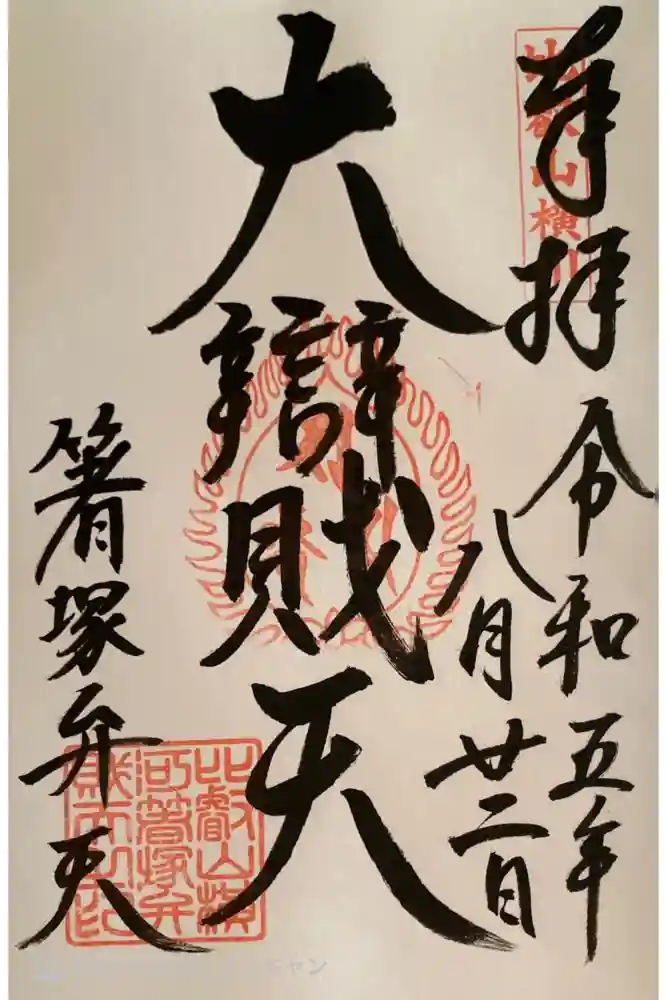 奉拝
令和五年
八月廿二日
比叡山横川
大辯財天
箸塚弁天
比叡山横
川箸塚弁